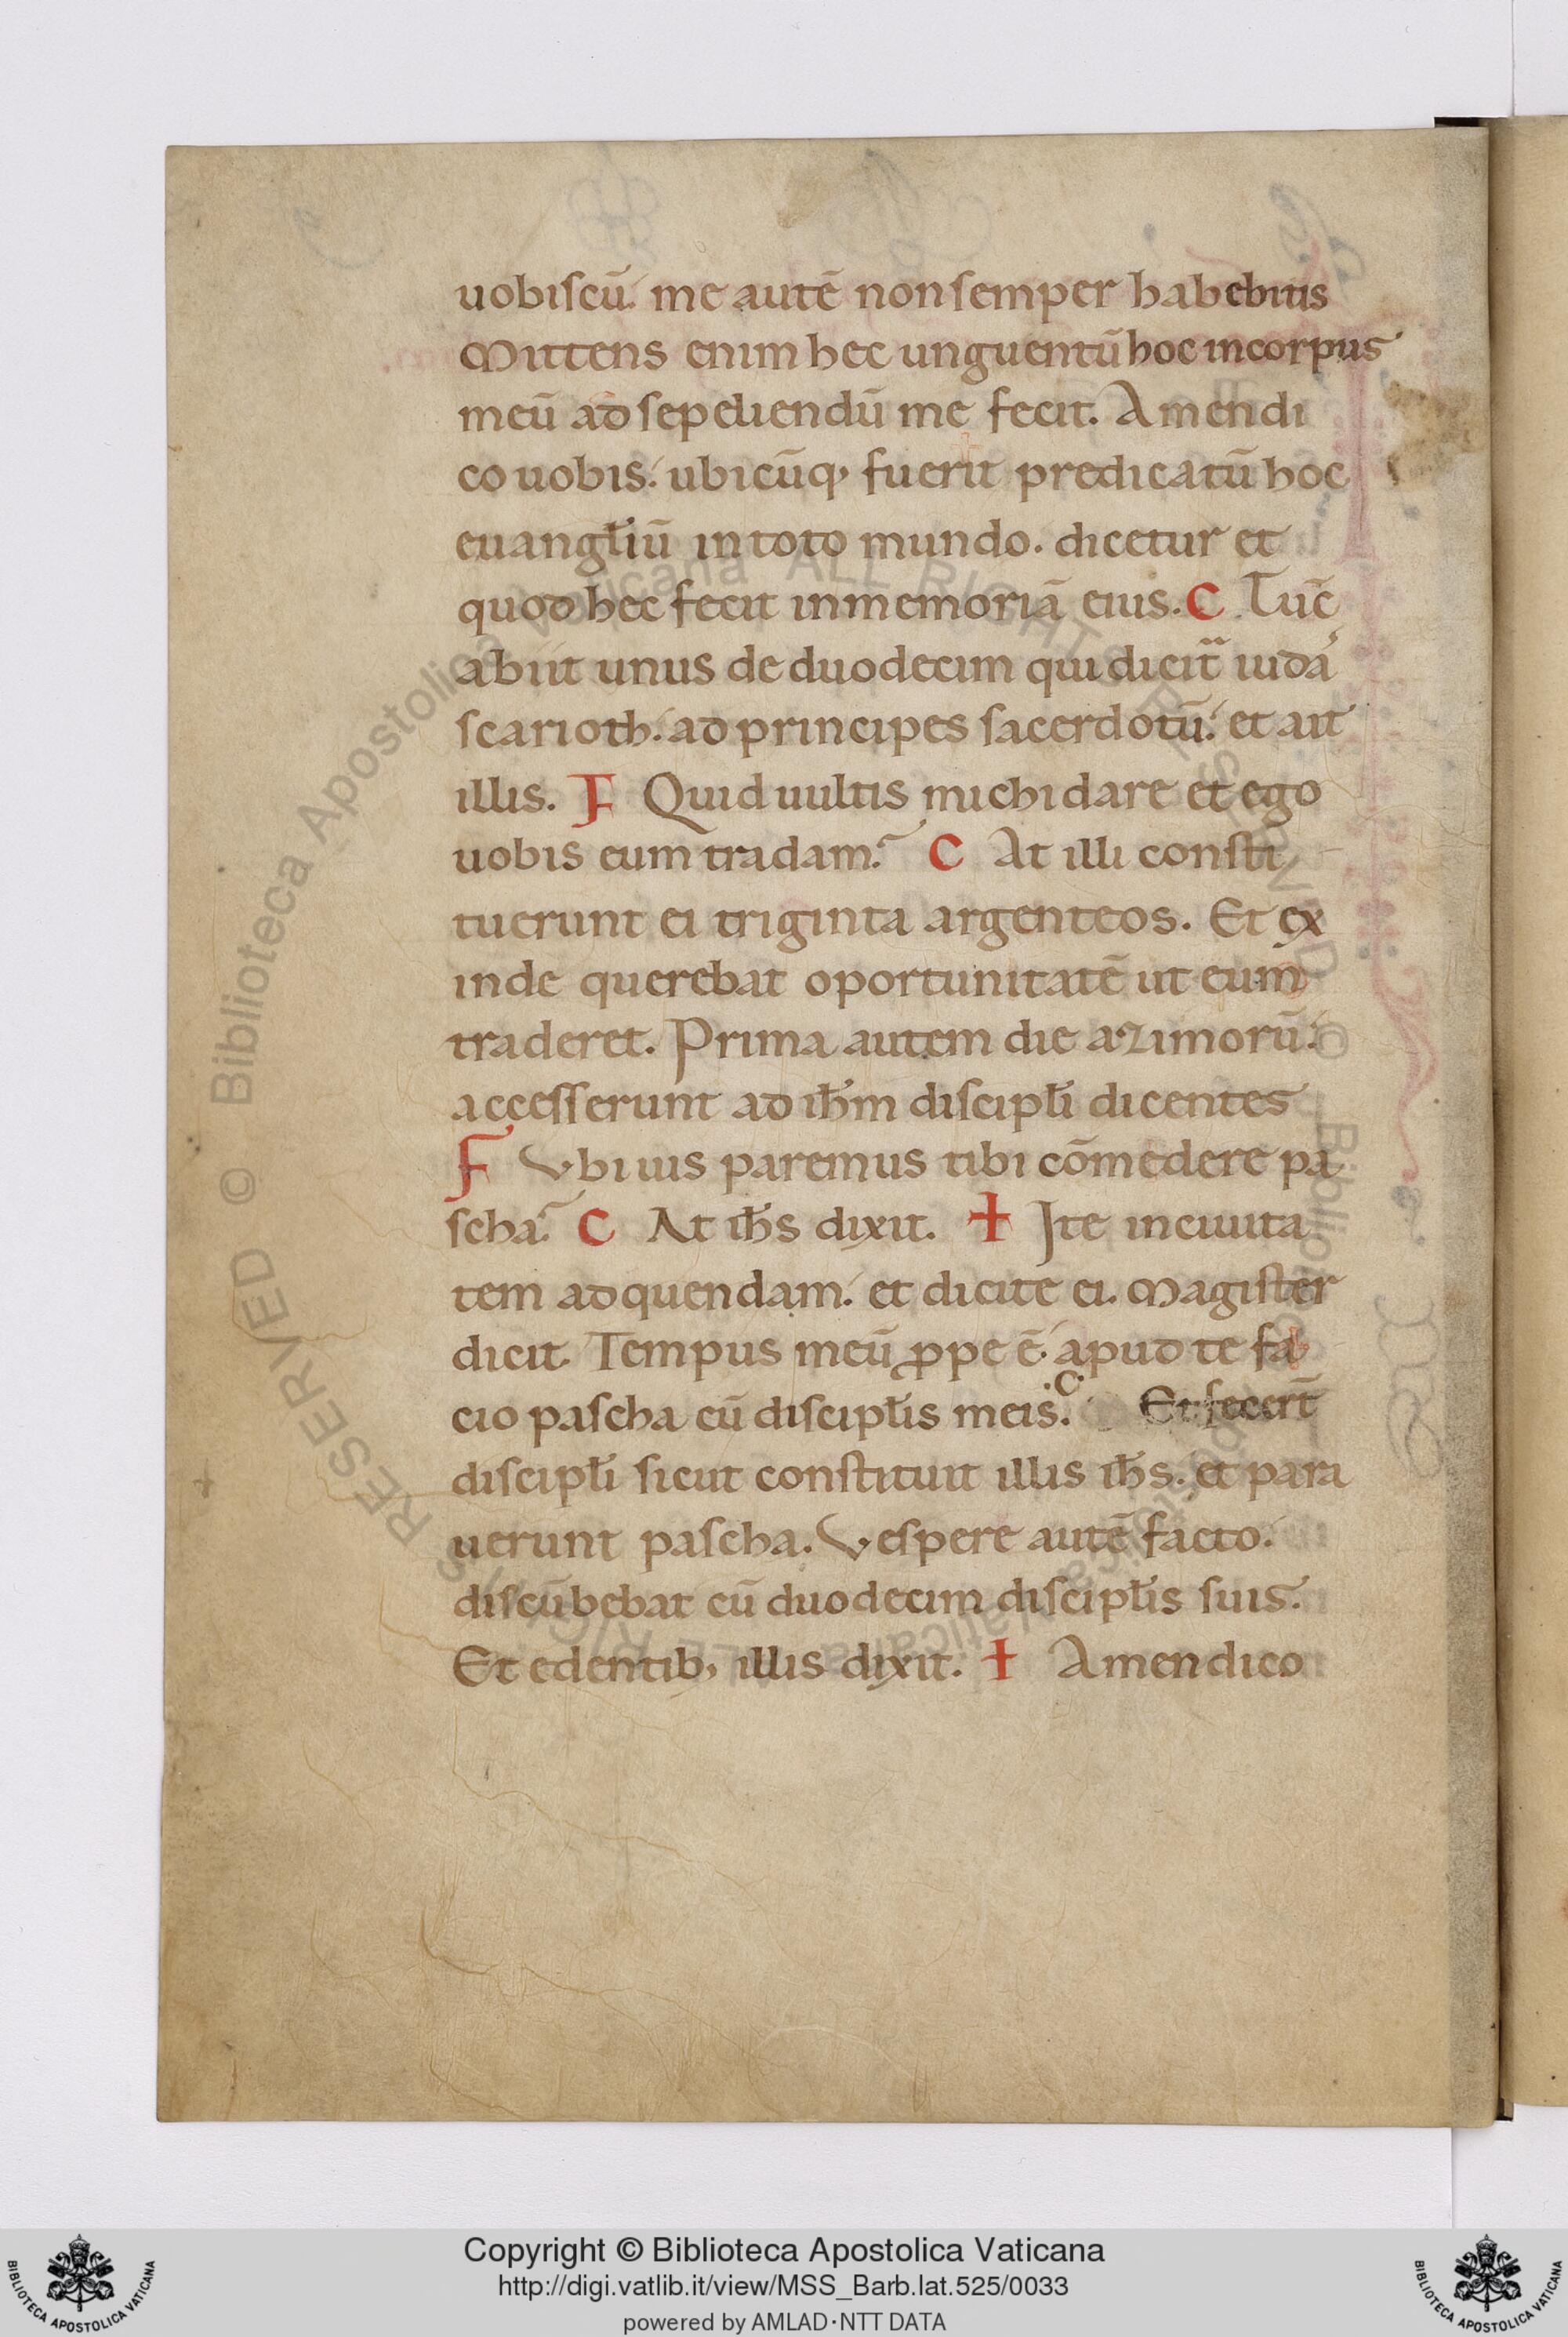 uobiscū. me autē non semper habebitis
Mittens enim hec unguentū hoc in corpus
meū ad sepeliendū me fecit. Amen di
co uobis. ubicūq; fuerit predicatū hoc
euangl̄iū in toto mundo. dicetur et
quod hec fecit in memoriā eius. C Tūc
abiit unus de duodecim qui dicit̄ iudas
scarioth. ad principes sacerdotū. et ait
illis. F Quid uultis michi dare et ego
uobis eum tradam. C At illi consti
tuerunt ei triginta argenteos. Et ex
inde querebat oportunitatē ut eum
traderet. Prima autem die azimorū.
accesserunt ad ih̄m discipl̄i dicentes
F Vbi uis paremus tibi cōmedere pa
scha. C At ih̄s dixit. ✝ Ite in ciuita
tem ad quendam. et dicite ei. Magister
dicit. Tempus meū ꝓpe ē. apud te fa
cio pascha cū discipl̄is meis. C Et fecert̄
discipl̄i sicut constituit illis ih̄s. et para
uerunt pascha. Vespere autē facto.
discūbebat cū duodecim discipl̄is suis.
Et edentib; illis dixit. ✝ Amen dico
Copyright © Biblioteca Apostolica Vaticana
http://digi.vatlib.it/view/MSS_Barb.lat.525/0033
powered by AMLAD·NTT DATA
BIBLIOTECA APOSTOLICA VATICANA
BIBLIOTECA APOSTOLICA VATICANA